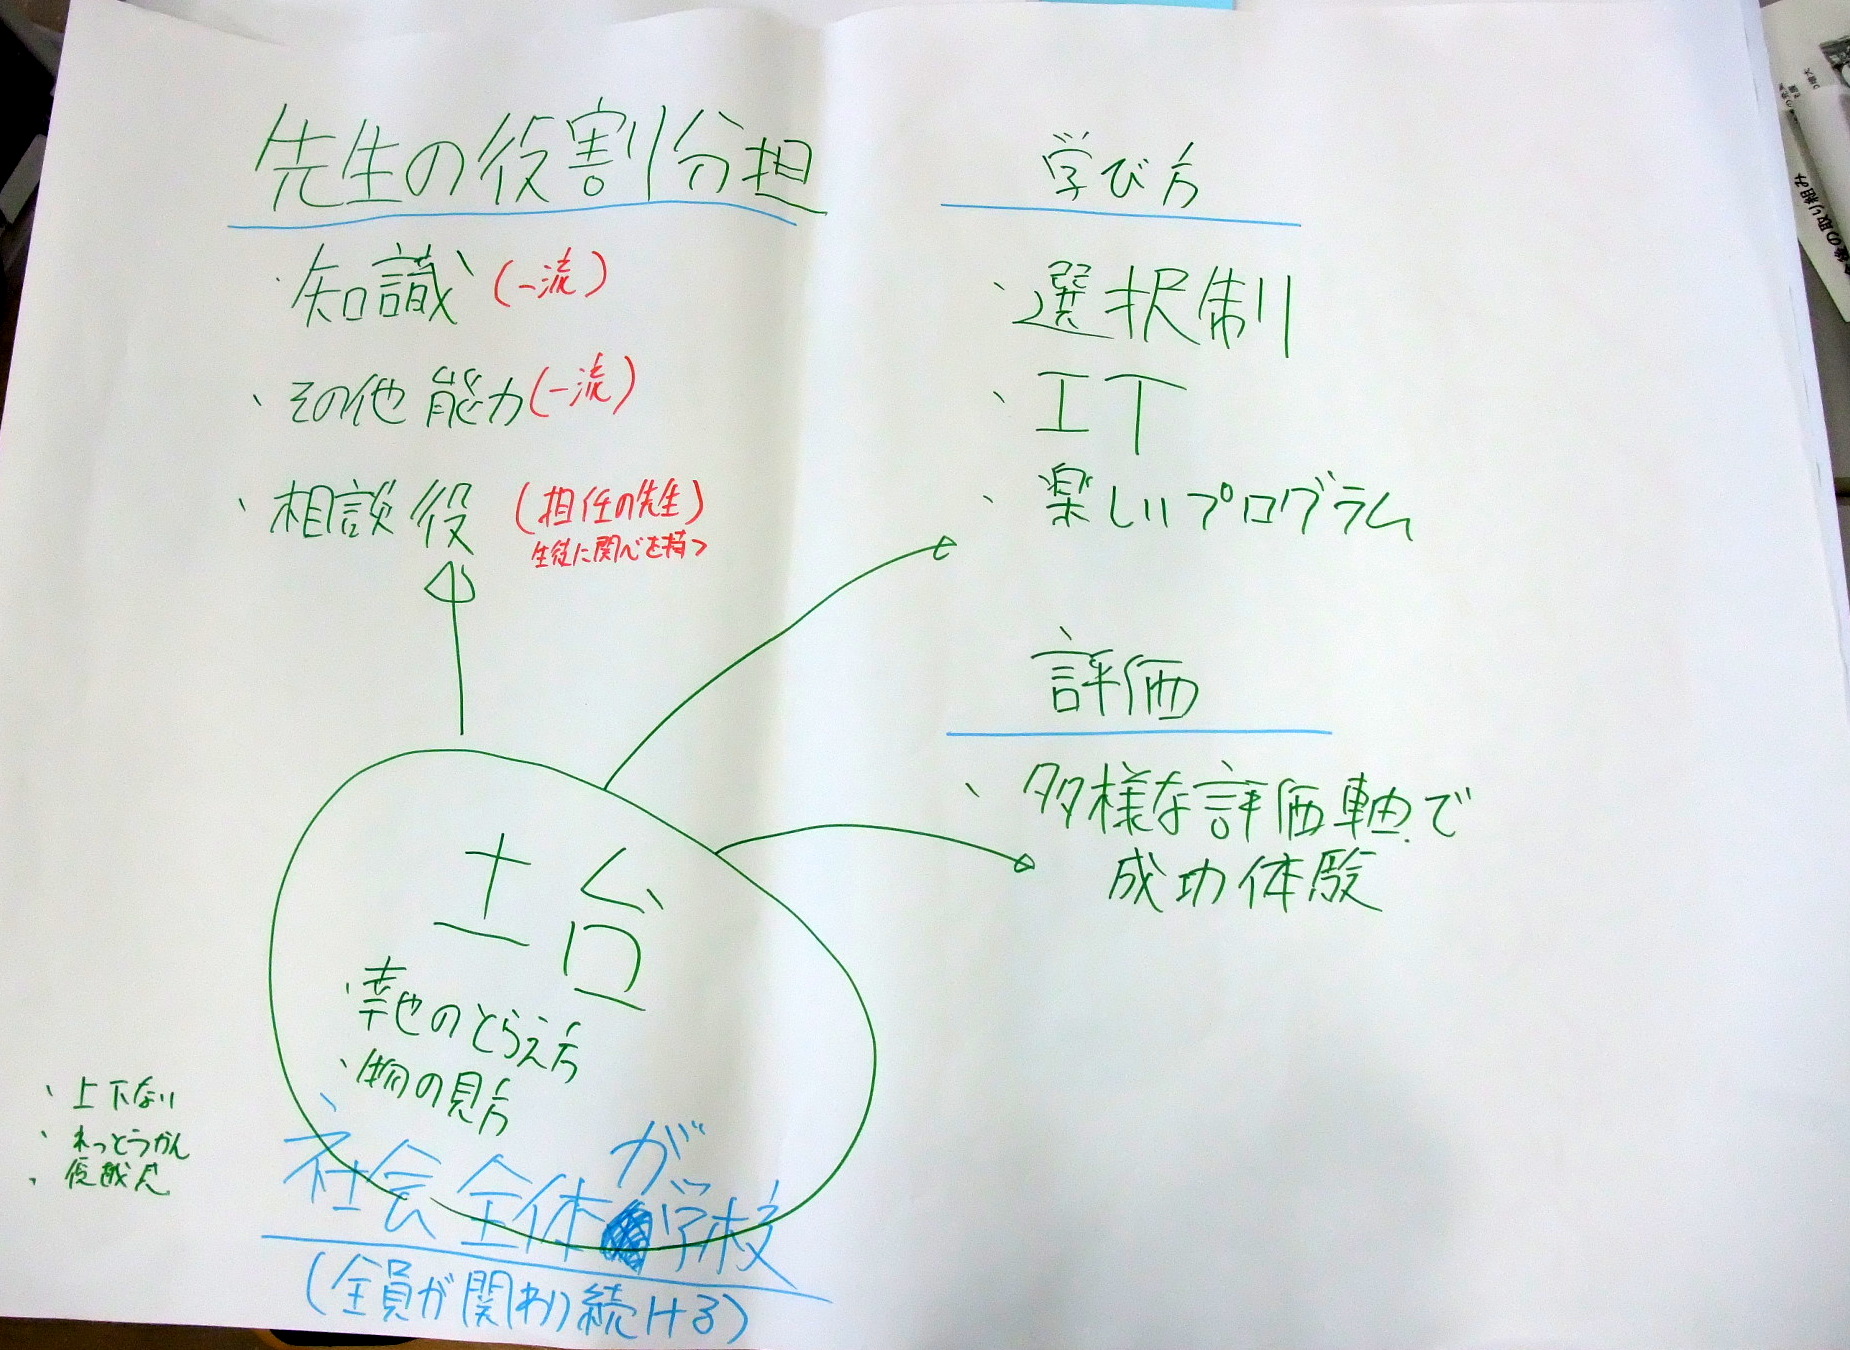 先生の役割分担
・知識 (一流)
・その他能力 (一流)
・相談役 (担任の先生)
生徒に関心を持つ
学び方
・選択制
・IT
・楽しいプログラム
評価
・多様な評価軸で
成功体験
土台
・幸せのとらえ方
・物の見方
社会全体が学校
(全員が関わり続ける)
・上下ない
・れっとうかん
・優越感
の取り組み